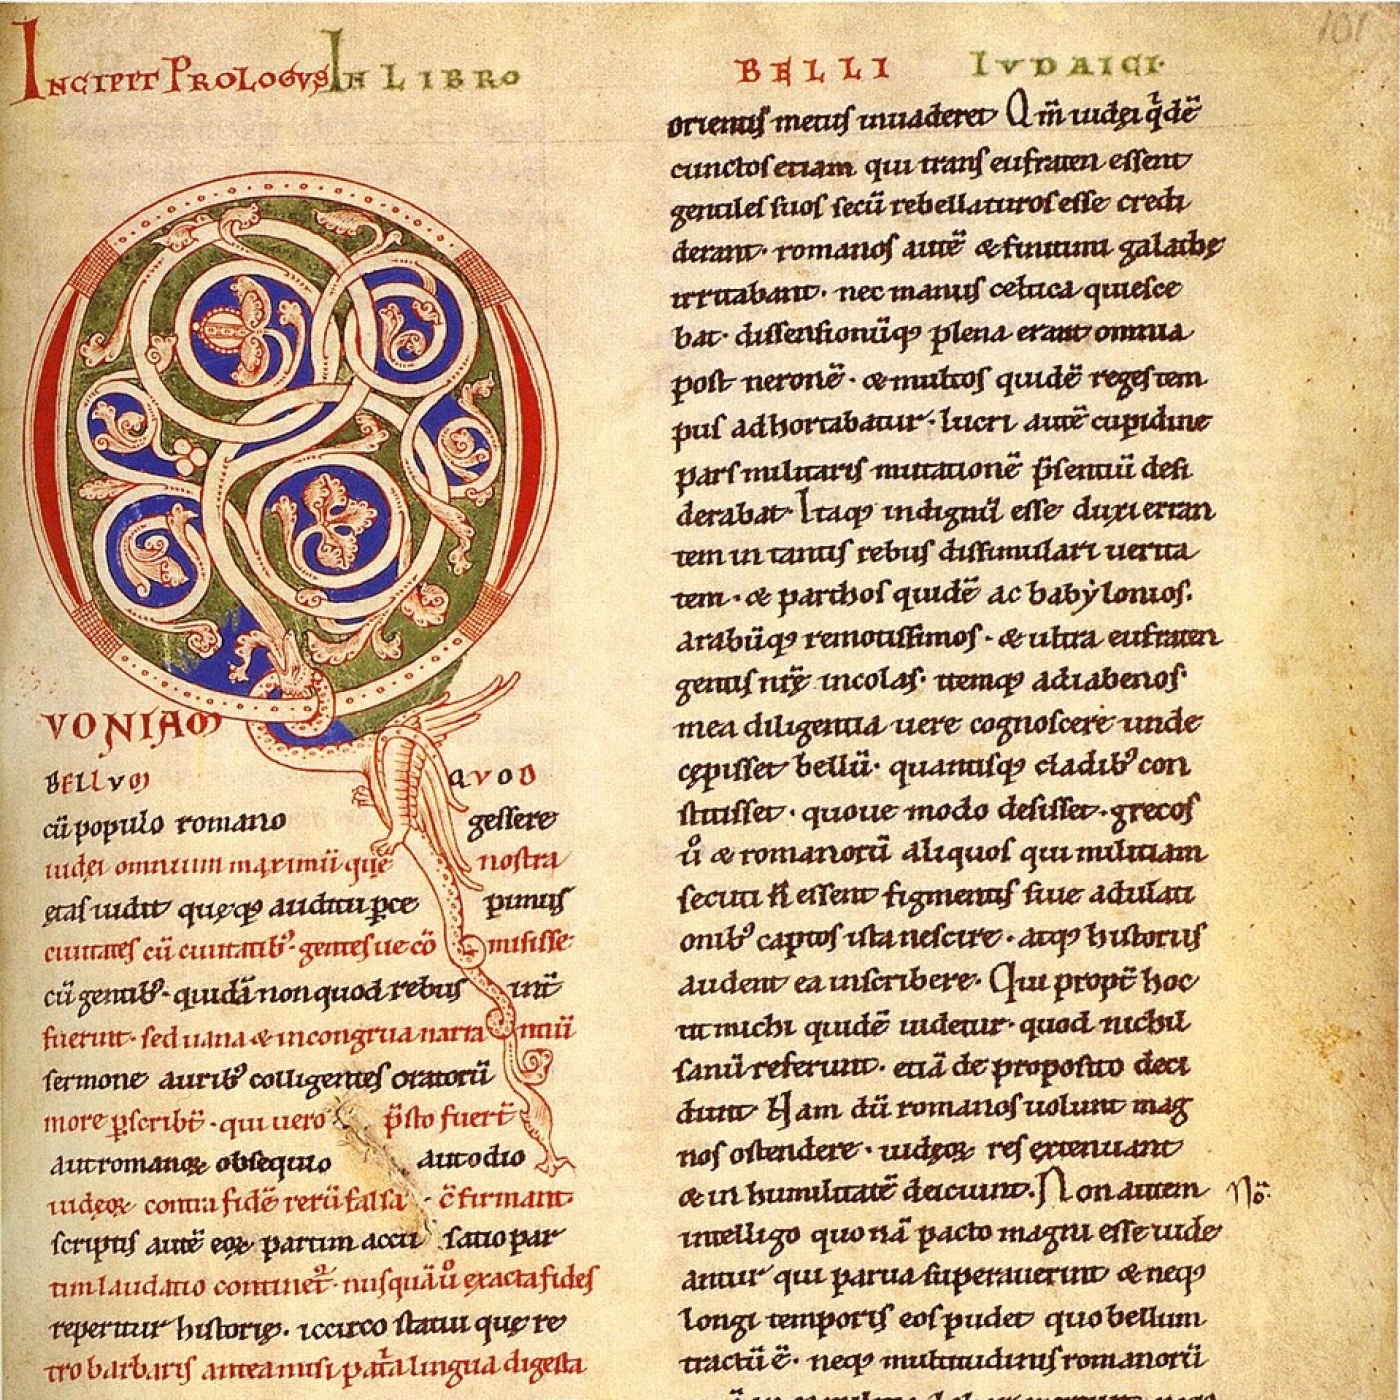 INCIPIT PROLOGVS IN LIBRO
BELLI IVDAICI
101
QVONIAM
BELLVM QVOD
cū populo romano gessere
iudei omnium maximū que nostra
ętas uidit quęqꝫ auditu ꝑce pimus
ciuitates cū ciuitatibꝰ· gentes ue cō misisse
cū gentibꝰ· quidā non quod rebus int̄
fuerunt· sed uana & incongrua narra ntiū
sermone auribꝰ colligentes oratorū
more ꝑscribt̄· qui uero p̄sto fuert̄
aut romanoꝝ obsequio aut odio
iudęoꝝ contra fidē rerū falsa c̄firmant
scriptis autē eoꝝ partim accu satio par
tim laudatio continet᷑· nusquā u̓o exacta fides
reperitur historię. iccirco statui que re
tro barbaris antea misi pat̄a lingua digesta
orientis metus inuaderet Qm̄ iudęi q̓dē
cunctos etiam qui trans eufraten essent
gentiles suos secū rebellaturos esse credi
derant· romanos autē & finitimi galathę
irritabant· nec manus celtica quiesce
bat· dissensionūqꝫ plena erant omnia
post neronē· & multos quidē reges tem
pus adhortabatur· lucri autē cupidine
pars militaris mutationē p̄sentiū desi
derabat· Itaqꝫ indignū esse duxi erran
tem in tantis rebus dissimulari uerita
tem· & parthos quidē ac babẏlonios.
arabūqꝫ remotissimos· & ultra eufraten
gentis nr̄ę incolas· itemqꝫ adiabenos·
mea diligentia uere cognoscere unde
cępisset bellū· quantisqꝫ cladibꝰ con
stitisset· quoue modo desisset· grecos
u̓o & romanorū aliquos qui militiam
secuti n̄ essent figmentis siue adulati
onibꝰ captos ista nescire· atqꝫ historiis
audent ea inscribere· Qui propt̄ hoc
ut michi quidē uidetur· quod nichil
sanū referunt· etiā de proposito deci
dunt Nam dū romanos uolunt mag
nos ostendere· iudęoꝝ res extenuant
& in humilitatē deiciunt. Non autem No᷑:
intelligo quo nā pacto magni esse uide
antur qui parua superauerint & neqꝫ
longi temporis eos pudet quo bellum
tractū ē· neqꝫ multitudinis romanorū